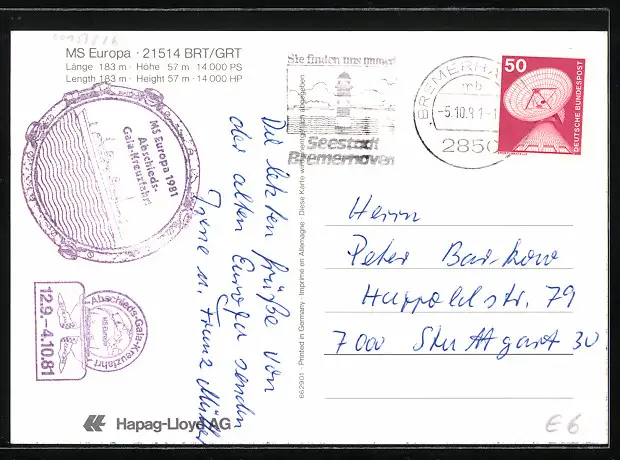 MS Europa · 21514 BRT/GRT
Länge 183 m · Höhe 57 m · 14.000 PS
Length 183 m · Height 57 m · 14 000 HP
MS Europa 1981
Abschieds-
Gala-Kreuzfahrt
12.9.-4.10.81
Abschieds-Gala-Kreuzfahrt
MS Europa
Hapag-Lloyd AG
Die letzten Grüße von
der alten Europa senden
Irene u. Franz Müller
662901 · Printed in Germany · Imprimé en Allemagne · Diese Karte wird portofrei
Sie finden uns immer!
Seestadt
Bremerhaven
BREMERHA
mb
-5.10.81-1
2850
50
DEUTSCHE BUNDESPOST
Herrn
Peter Barkow
Huppoldstr. 79
7000 Stuttgart 30
E6